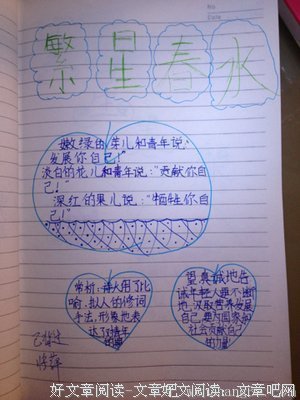 No
Date
繁星春水
嫩绿的芽儿和青年说:
发展你自己!"
淡白的花儿和青年说:"贡献你自
己!"
深红的果儿说:"牺牲你自
己!"
赏析:诗人用了比
喻、拟人的修辞
手法,形象地表
达了对青年
望真诚地告
诫年轻人要不断
地汲取营养发展
自己,要为国家和
社会贡献自己
的力量
好文章阅读-文章吧文阅读-文章吧网